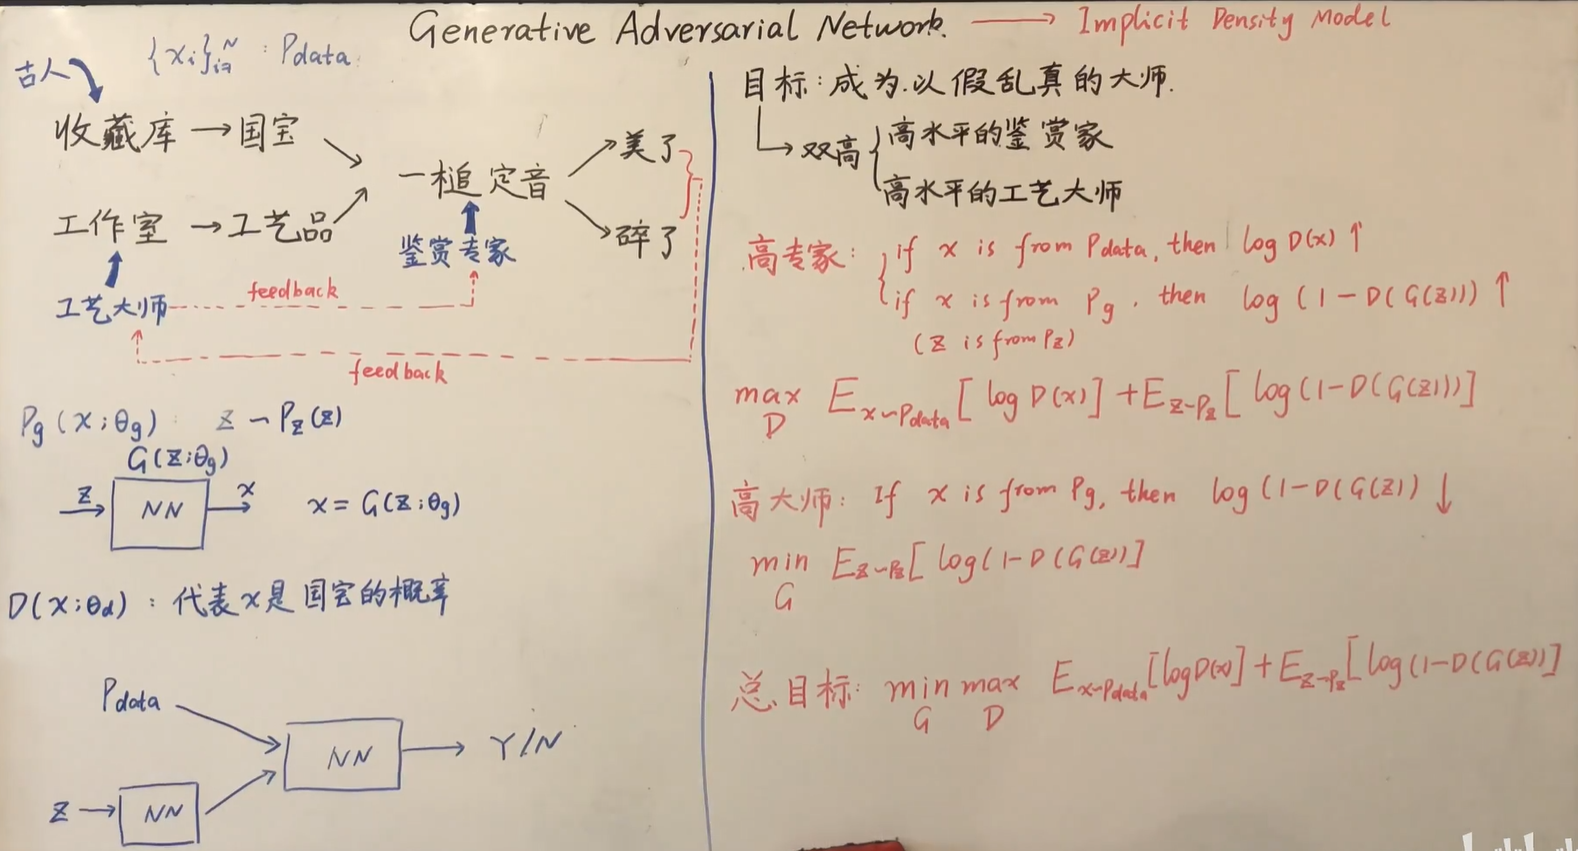 Generative Adversarial Network. → Implicit Density Model
古人
{xi}ᴺᵢ₌₁ : Pdata
收藏库 → 国宝
一槌定音
美了
碎了
工作室 → 工艺品
鉴赏专家
工艺大师
feedback
feedback
Pg(x;θg) : z ~ Pz(z)
G(z;θg)
z
NN
x
x = G(z;θg)
D(x;θd) : 代表x是国宝的概率
Pdata
NN
Y/N
z → NN
目标: 成为以假乱真的大师.
双高
高水平的鉴赏家
高水平的工艺大师
高专家: if x is from Pdata, then log D(x) ↑
if x is from Pg, then log (1-D(G(z))) ↑
(z is from Pz)
max E x~Pdata [log D(x)] + E z~Pz [log(1-D(G(z)))]
D
高大师: If x is from Pg, then log(1-D(G(z)) ↓
min E z~Pz [log(1-D(G(z))]
G
总目标: min max E x~Pdata [log D(x)] + E z~Pz [log(1-D(G(z))]
G D